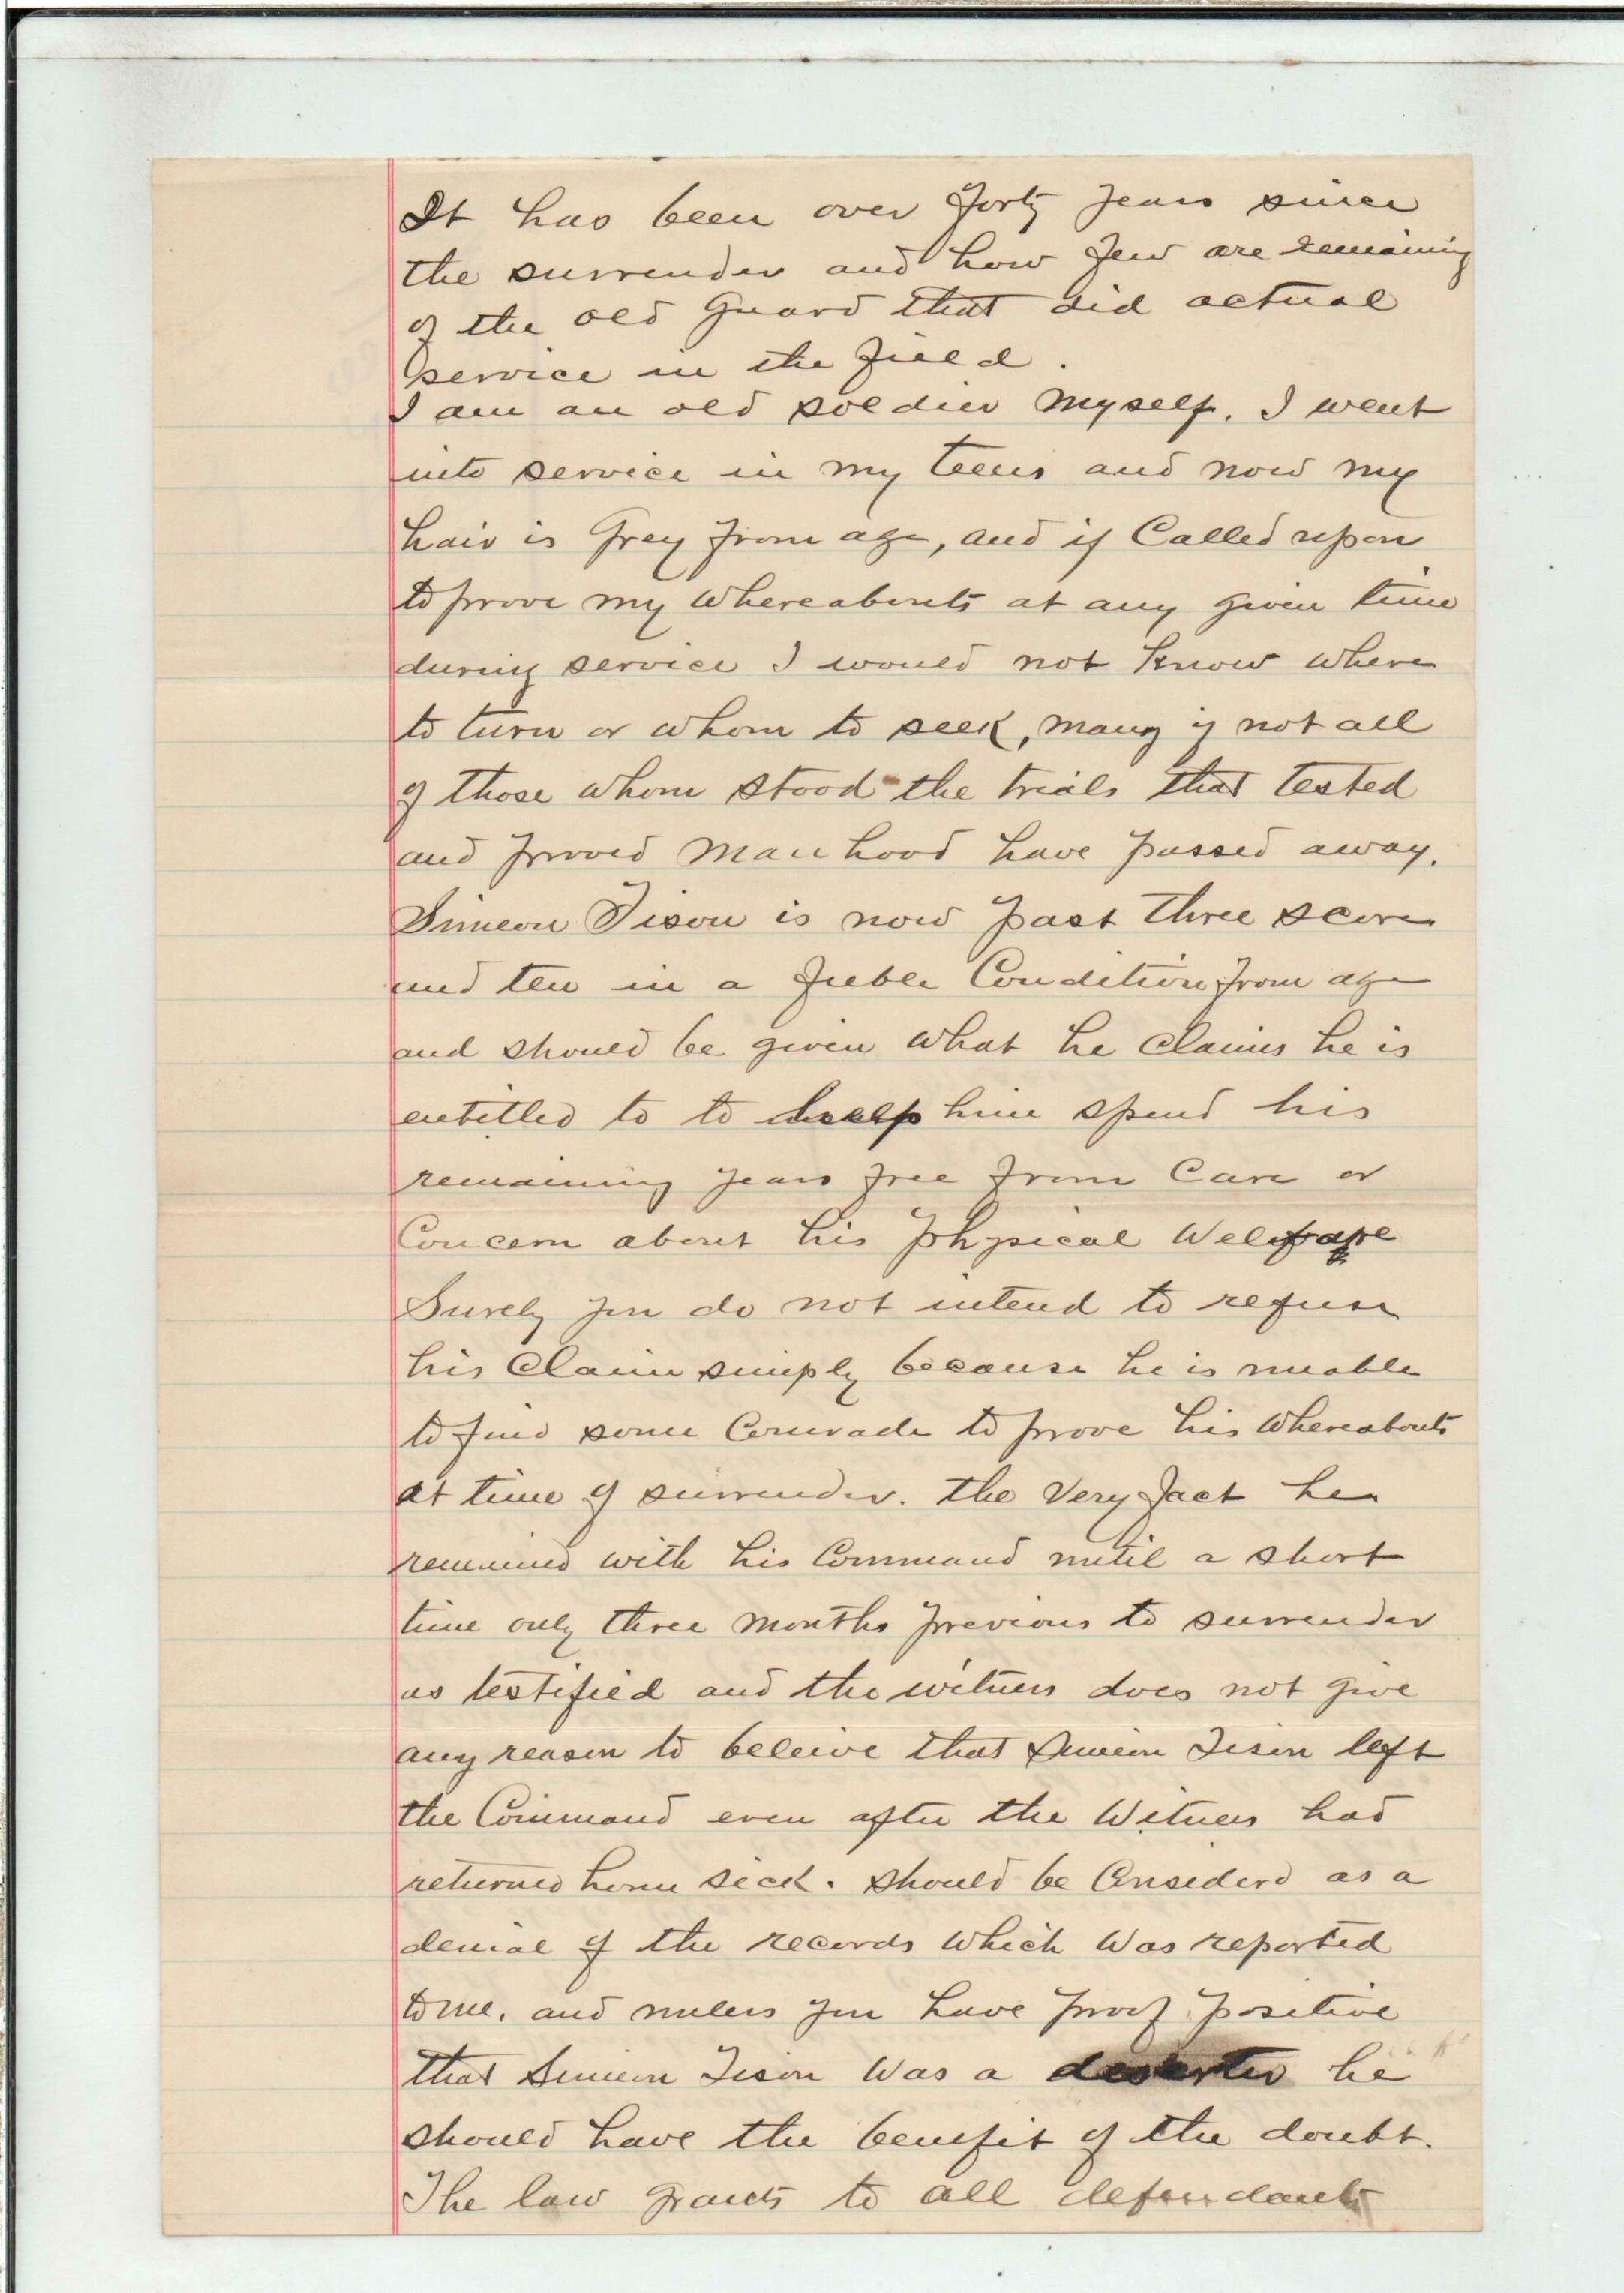 It has been over forty years since
the surrender and how few are remaining
of the old guard that did actual
service in the field.
I am an old soldier myself. I went
into service in my teens and now my
hair is Grey from age, and if Called upon
to prove my whereabouts at any given time
during service I would not know where
to turn or whom to seek, many if not all
of those whom stood the trials that tested
and proved manhood have passed away.
Simeon Tison is now past three score
and ten in a feeble Condition from age
and should be given what he claims he is
entitled to to help him spend his
remaining years free from Care or
Concern about his physical Welfare
Surely you do not intend to refuse
his Claim simply because he is unable
to find some Comrade to prove his whereabouts
at time of surrender. The very fact he
remained with his Command until a short
time only three months previous to surrender
as testified and the witness does not give
any reason to beleive that Simeon Tison left
the Command even after the Witness had
returned home sick. should be Considerd as a
denial of the records which was reported
to me. and unless you have proof positive
that Simeon Tison was a deserter he
should have the benefit of the doubt.
The law grants to all defendants